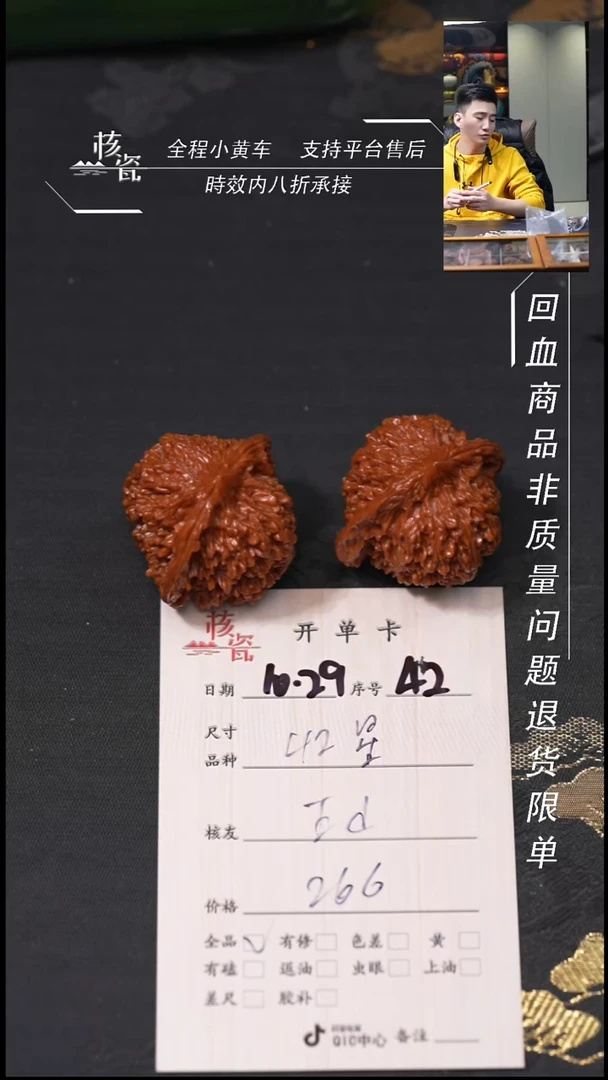 核瓷
全程小黄车 支持平台售后
時效内八折承接
回血商品非质量问题退货限单
核瓷
开单卡
日期 10.29 序号 42
尺寸
品种 42
核友
价格 266
全品 有修 色差 黄
有磕 返油 虫眼 上油
差尺 胶补
QIC中心 备注